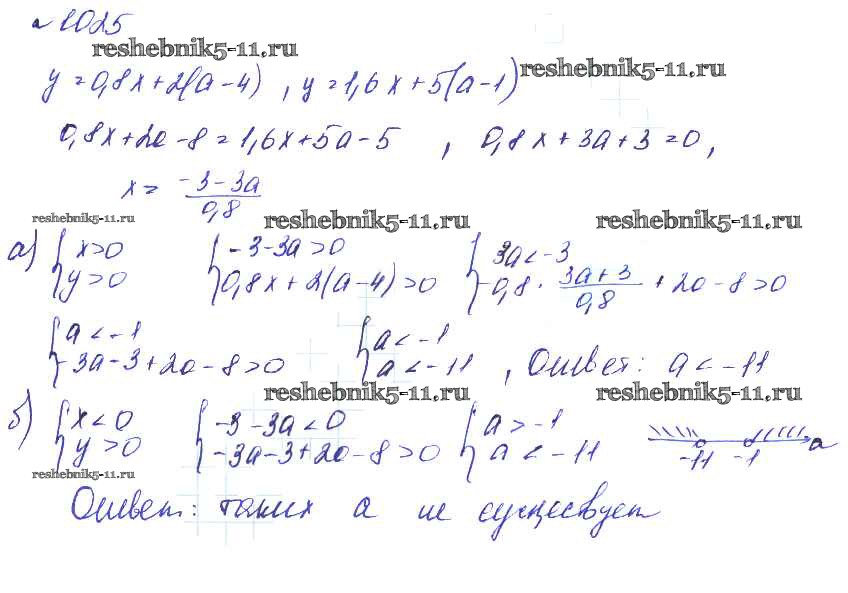 № 1025
reshebnik5-11.ru
y = 0,8x + 2(a - 4) , y = 1,6x + 5(a - 1) reshebnik5-11.ru
0,8x + 2a - 8 = 1,6x + 5a - 5 , 0,8x + 3a + 3 = 0,
x = (-3 - 3a)/0,8
reshebnik5-11.ru reshebnik5-11.ru reshebnik5-11.ru
а) { x > 0 { -3 - 3a > 0 { 3a < -3
y > 0 0,8x + 2(a - 4) > 0 -0,8 · (3a + 3)/0,8 + 2a - 8 > 0
{ a < -1 { a < -1
-3a - 3 + 2a - 8 > 0 a < -11 , Ответ: a < -11
reshebnik5-11.ru reshebnik5-11.ru
б) { x < 0 { -3 - 3a < 0 { a > -1
y > 0 -3a - 3 + 2a - 8 > 0 a < -11 -11 -1 a
reshebnik5-11.ru
Ответ: таких a не существует